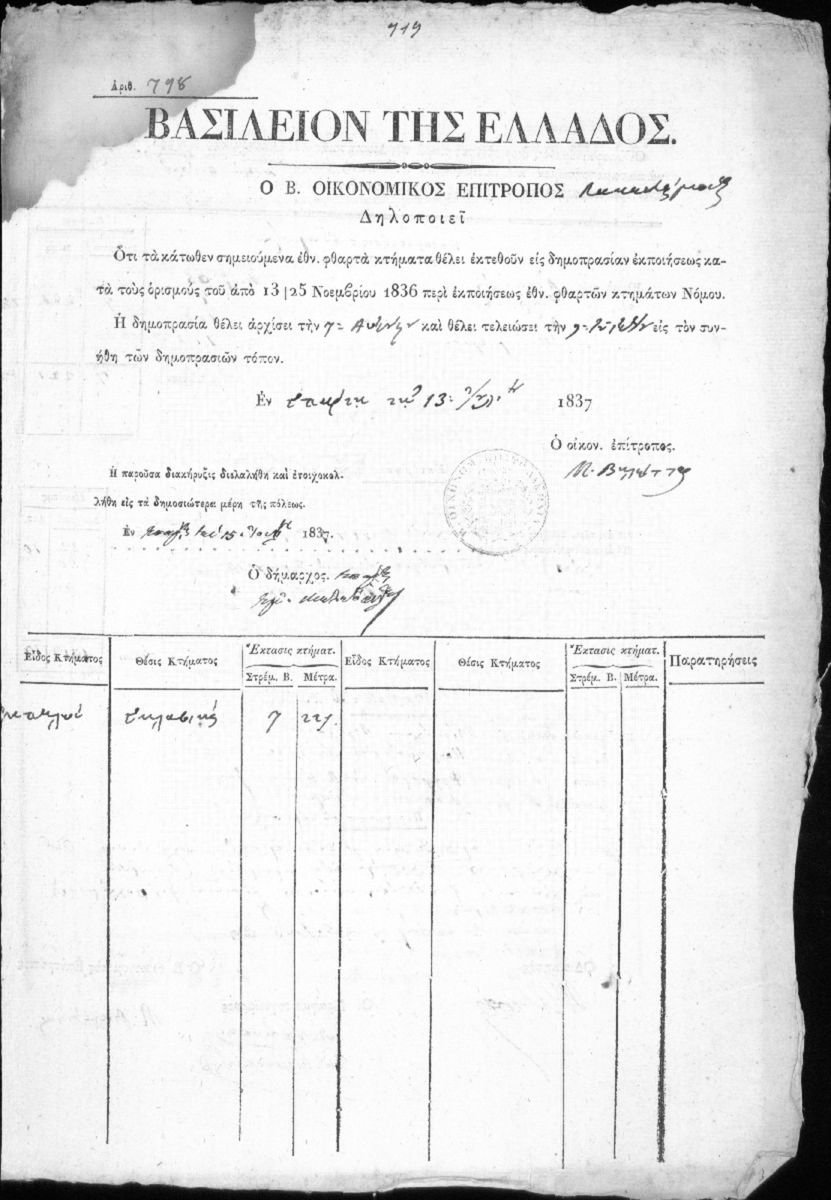 719
Ἀριθ. 798
ΒΑΣΙΛΕΙΟΝ ΤΗΣ ΕΛΛΑΔΟΣ.
Ο Β. ΟΙΚΟΝΟΜΙΚΟΣ ΕΠΙΤΡΟΠΟΣ
Δηλοποιεῖ
Ὅτι τὰ κάτωθεν σημειούμενα ἐθν. φθαρτὰ κτήματα θέλει ἐκτεθοῦν εἰς δημοπρασίαν ἐκποιήσεως κα-
τὰ τοὺς ὁρισμοὺς τοῦ ἀπὸ 13|25 Νοεμβρίου 1836 περὶ ἐκποιήσεως ἐθν. φθαρτῶν κτημάτων Νόμου.
Ἡ δημοπρασία θέλει ἀρχίσει τὴν 7 καὶ θέλει τελειώσει τὴν 9 εἰς τὸν συν-
ήθη τῶν δημοπρασιῶν τόπον.
Ἐν 13 1837
Ὁ οἰκον. ἐπίτροπος.
Ἡ παροῦσα διακήρυξις διελαλήθη καὶ ἐτοιχοκολ-
λήθη εἰς τὰ δημοσιώτερα μέρη τῆς πόλεως.
Ἐν 15 1837.
Ὁ δήμαρχος.
Εἶδος Κτήματος Θέσις Κτήματος Ἔκτασις κτήματ. Εἶδος Κτήματος Θέσις Κτήματος Ἔκτασις κτήματ. Παρατηρήσεις
Στρέμ. Β. Μέτρα. Στρέμ. Β. Μέτρα.
7